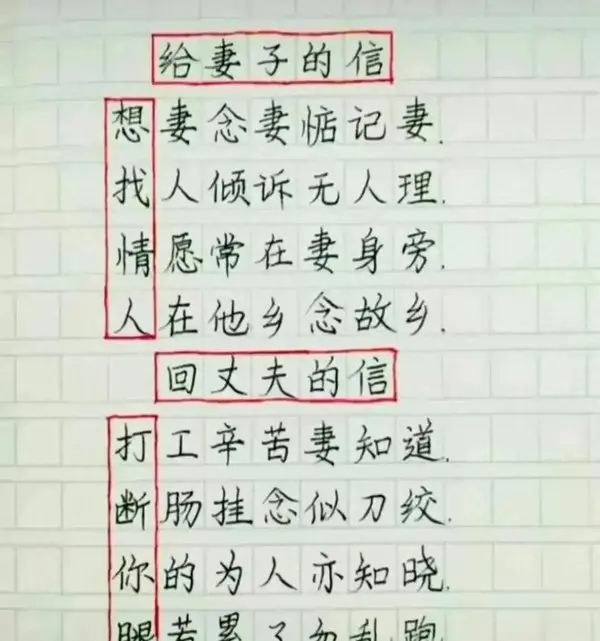 给妻子的信
想妻念妻惦记妻.
找人倾诉无人理.
情愿常在妻身旁.
人在他乡念故乡.
回丈夫的信
打工辛苦妻知道.
断肠挂念似刀绞.
你的为人亦知晓.
腿若累了勿乱跑